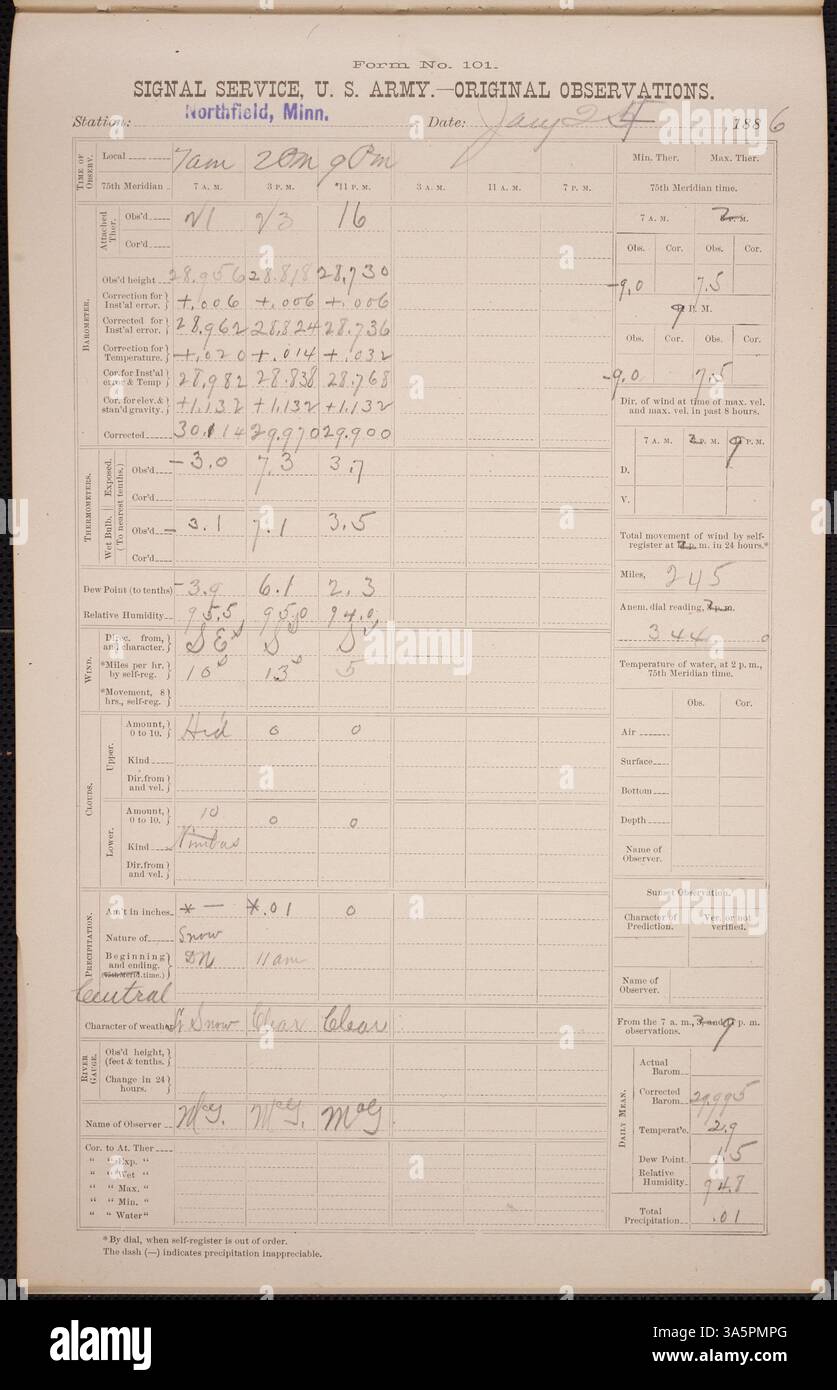 Form No. 101.
SIGNAL SERVICE, U. S. ARMY.—ORIGINAL OBSERVATIONS.
Station: Northfield, Minn. Date: Jany 24 1886
TIME OF OBSERV.
Local 7am 2Pm 9Pm
75th Meridian 7 A. M. 3 P. M. *11 P. M. 3 A. M. 11 A. M. 7 P. M.
BAROMETER.
Attached Ther.
Obs'd 16
Cor'd
Obs'd height 28.956 28.818 28.730
Correction for Inst'al error. +.006 +.006 +.006
Corrected for Inst'al error. 28.962 28.824 28.736
Correction for Temperature. +.020 +.014 +.032
Cor. for Inst'al error & Temp 28.982 28.838 28.768
Cor. for elev. & stan'd gravity. +1.132 +1.132 +1.132
Corrected 30.114 29.970 29.900
THERMOMETERS.
Exposed. (To nearest tenths.)
Obs'd -3.0 7.3 3.7
Cor'd
Wet Bulb.
Obs'd -3.1 7.1 3.5
Cor'd
Dew Point (to tenths) -3.9 6.1 2.3
Relative Humidity 95.5 95.0 94.0
WIND.
Direc. from, and character. SE S S
*Miles per hr. by self-reg. 10 13 5
*Movement, 8 hrs., self-reg.
CLOUDS.
Upper.
Amount, 0 to 10. Hid 0 0
Kind
Dir. from and vel.
Lower.
Amount, 0 to 10. 10 0 0
Kind Nimbus
Dir. from and vel.
PRECIPITATION.
Am't in inches * — *.01 0
Nature of Snow
Beginning and ending. (75th Merid. time.) DN 11am
Central
Character of weather Lt Snow Clear Clear
RIVER GAUGE.
Obs'd height, (feet & tenths.)
Change in 24 hours.
Name of Observer McG. McG. McG
Cor. to At. Ther
" " Exp. "
" " Wet "
" " Max. "
" " Min. "
" " Water "
*By dial, when self-register is out of order.
The dash (—) indicates precipitation inappreciable.
Min. Ther. Max. Ther.
75th Meridian time.
7 A. M. P. M.
Obs. Cor. Obs. Cor.
-9.0 7.5
9 P. M.
Obs. Cor. Obs. Cor.
-9.0 7.5
Dir. of wind at time of max. vel. and max. vel. in past 8 hours.
7 A. M. P. M. 9 P. M.
D.
V.
Total movement of wind by self-register at p. m. in 24 hours.*
Miles, 245
Anem. dial reading, p. m.
344 0
Temperature of water, at 2 p. m., 75th Meridian time.
Obs. Cor.
Air
Surface
Bottom
Depth
Name of Observer.
Sunset Observation.
Character of Prediction. Ver. or not verified.
Name of Observer.
From the 7 a. m., 3, and 9 p. m. observations.
DAILY MEAN.
Actual Barom
Corrected Barom 29.995
Temperat'e. 2.9
Dew Point 1.5
Relative Humidity 94.8
Total Precipitation .01
alamy
Image ID: 3A5PMPG
www.alamy.com